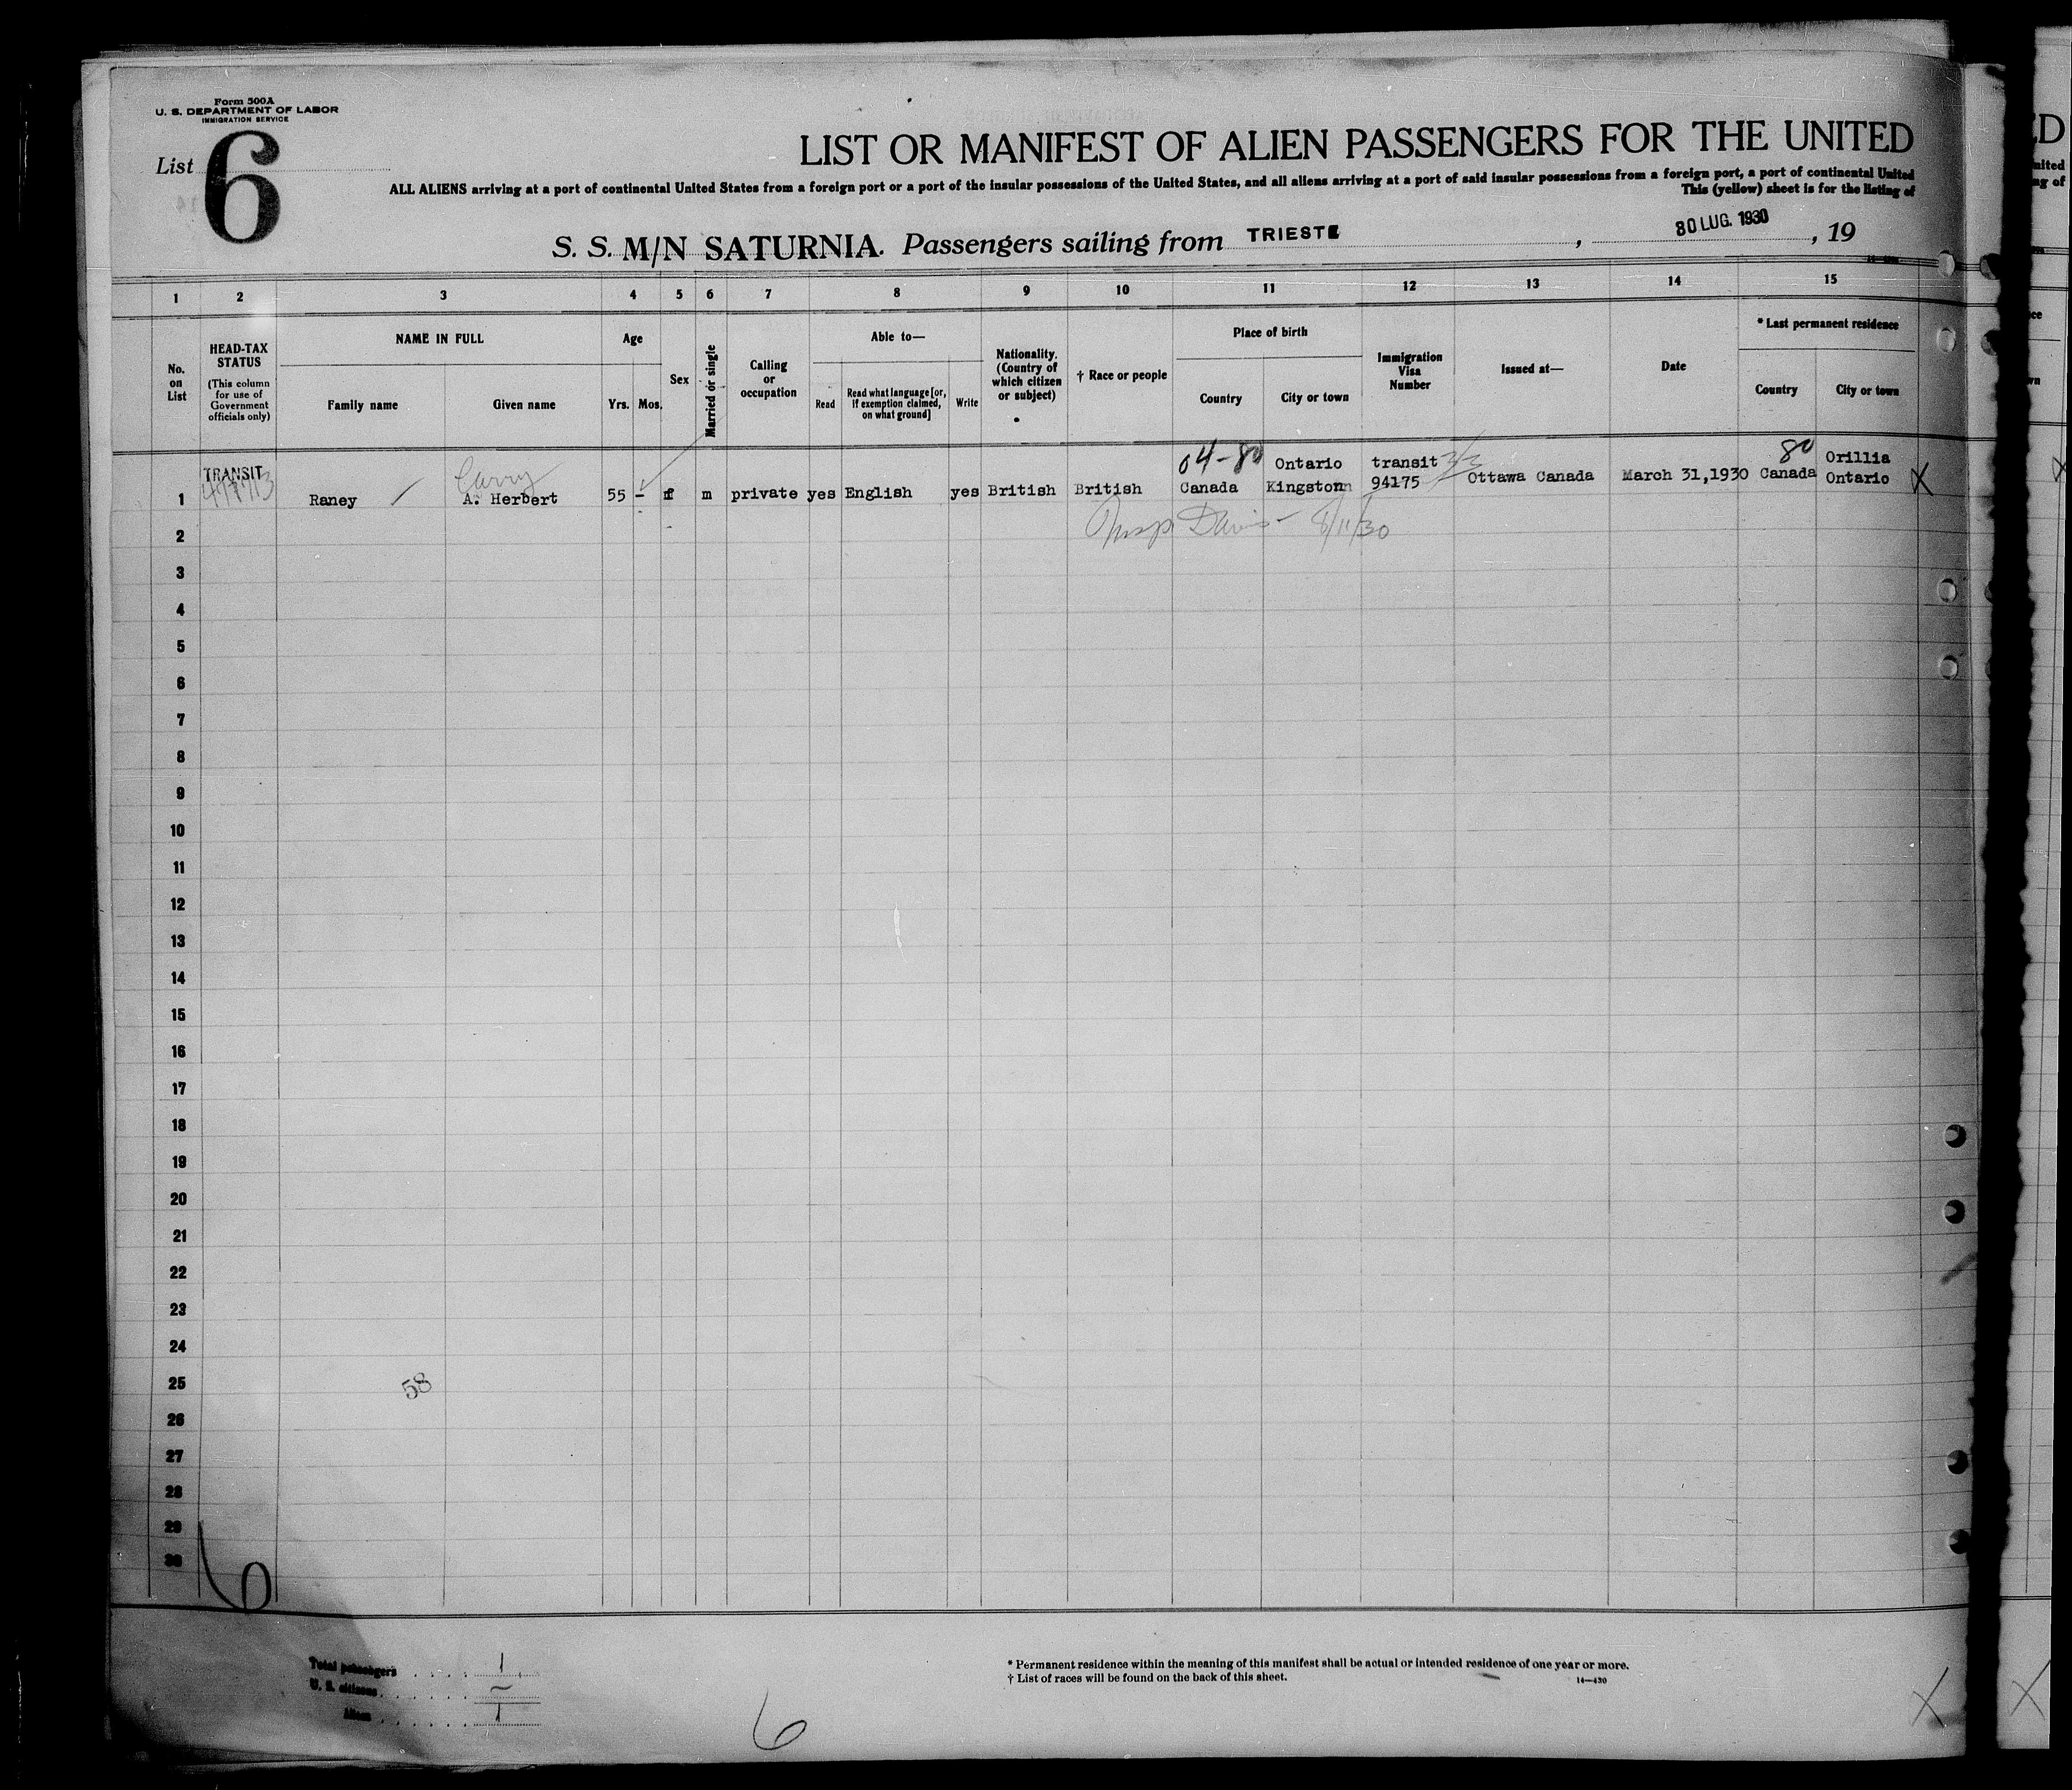 Form 500A
U. S. DEPARTMENT OF LABOR
IMMIGRATION SERVICE
List 6
LIST OR MANIFEST OF ALIEN PASSENGERS FOR THE UNITED
ALL ALIENS arriving at a port of continental United States from a foreign port or a port of the insular possessions of the United States, and all aliens arriving at a port of said insular possessions from a foreign port, a port of continental United
This (yellow) sheet is for the listing of
S. S. M/N SATURNIA. Passengers sailing from TRIESTE , 30 LUG. 1930 , 19
1 2 3 4 5 6 7 8 9 10 11 12 13 14 15
No. on List
HEAD-TAX STATUS
(This column for use of Government officials only)
NAME IN FULL
Family name Given name
Age
Yrs. Mos.
Sex
Married or single
Calling or occupation
Able to—
Read Read what language [or, if exemption claimed, on what ground] Write
Nationality. (Country of which citizen or subject)
† Race or people
Place of birth
Country City or town
Immigration Visa Number
Issued at—
Date
* Last permanent residence
Country City or town
TRANSIT 04-80 Ontario transit 80 Orillia
1 Raney A. Herbert 55 - m private yes English yes British British Canada Kingston 94175 Ottawa Canada March 31,1930 Canada Ontario X
2 Insp Davis - 8/11/30
3
4
5
6
7
8
9
10
11
12
13
14
15
16
17
18
19
20
21
22
23
24
25
58
26
27
28
29
30
6
Total passengers 1
U. S. citizens –
Aliens 1
6
* Permanent residence within the meaning of this manifest shall be actual or intended residence of one year or more.
† List of races will be found on the back of this sheet.
14—430
X
X